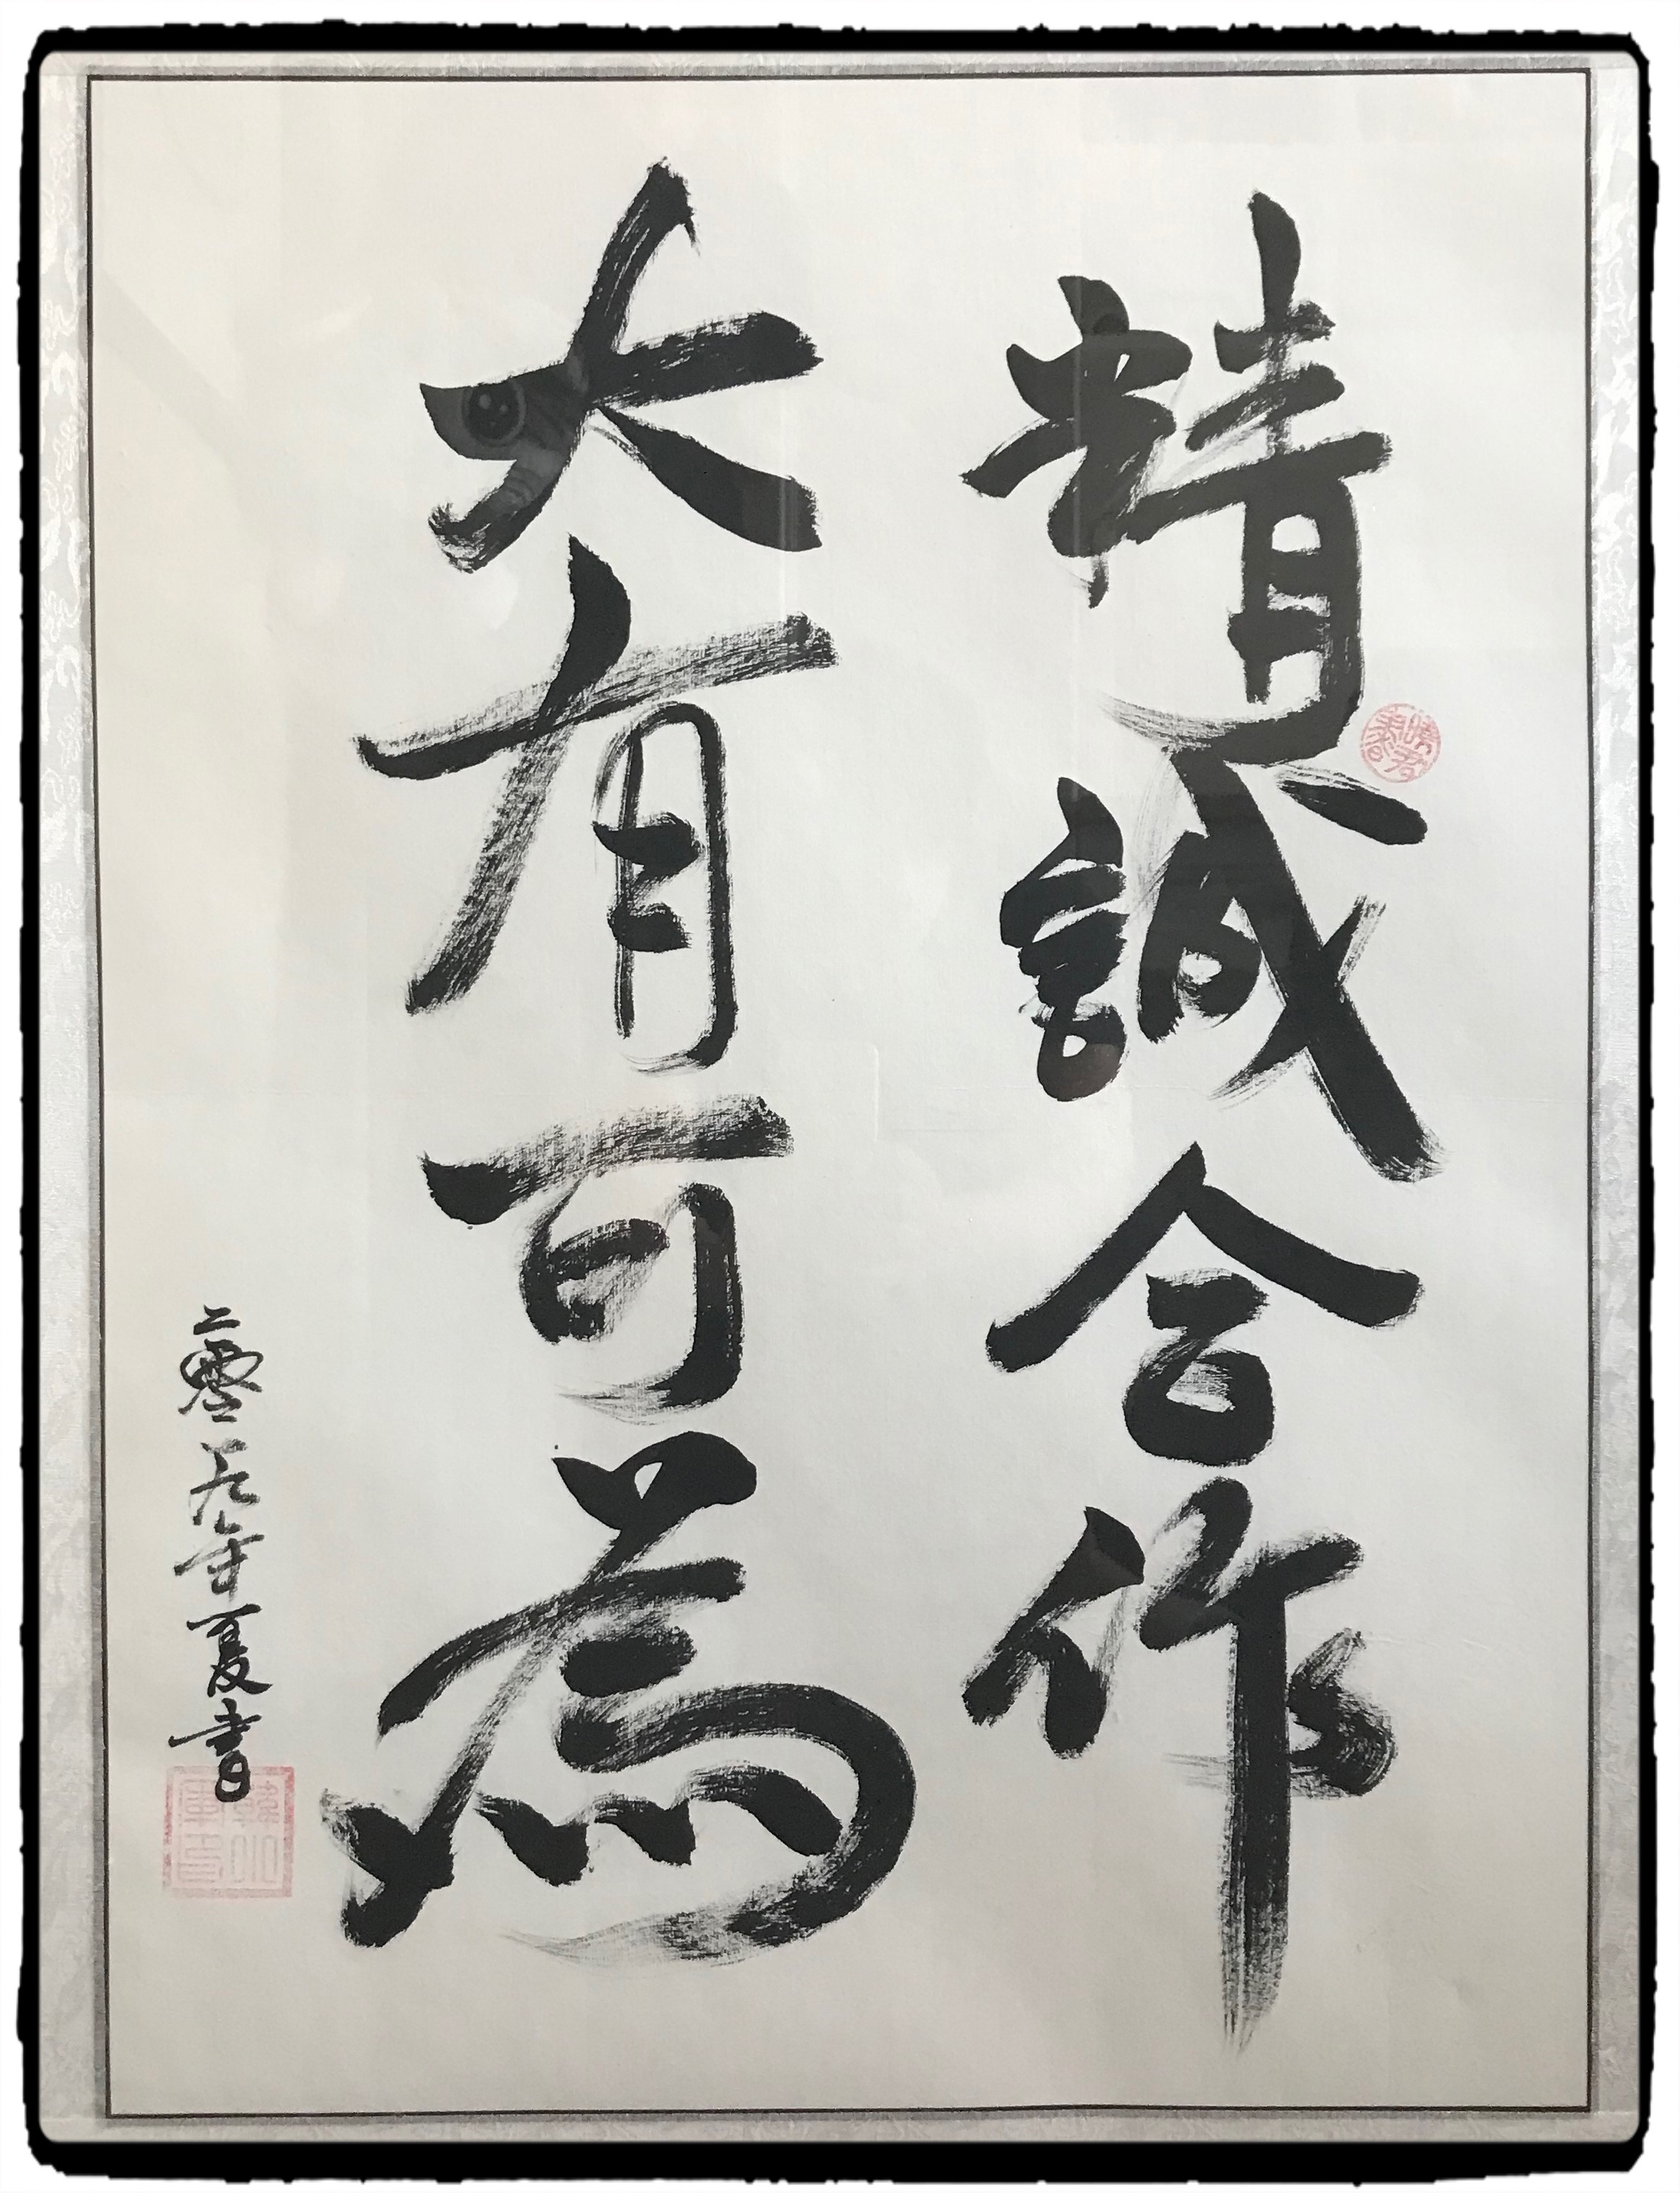 精誠合作
大有可為
二零一九年夏書